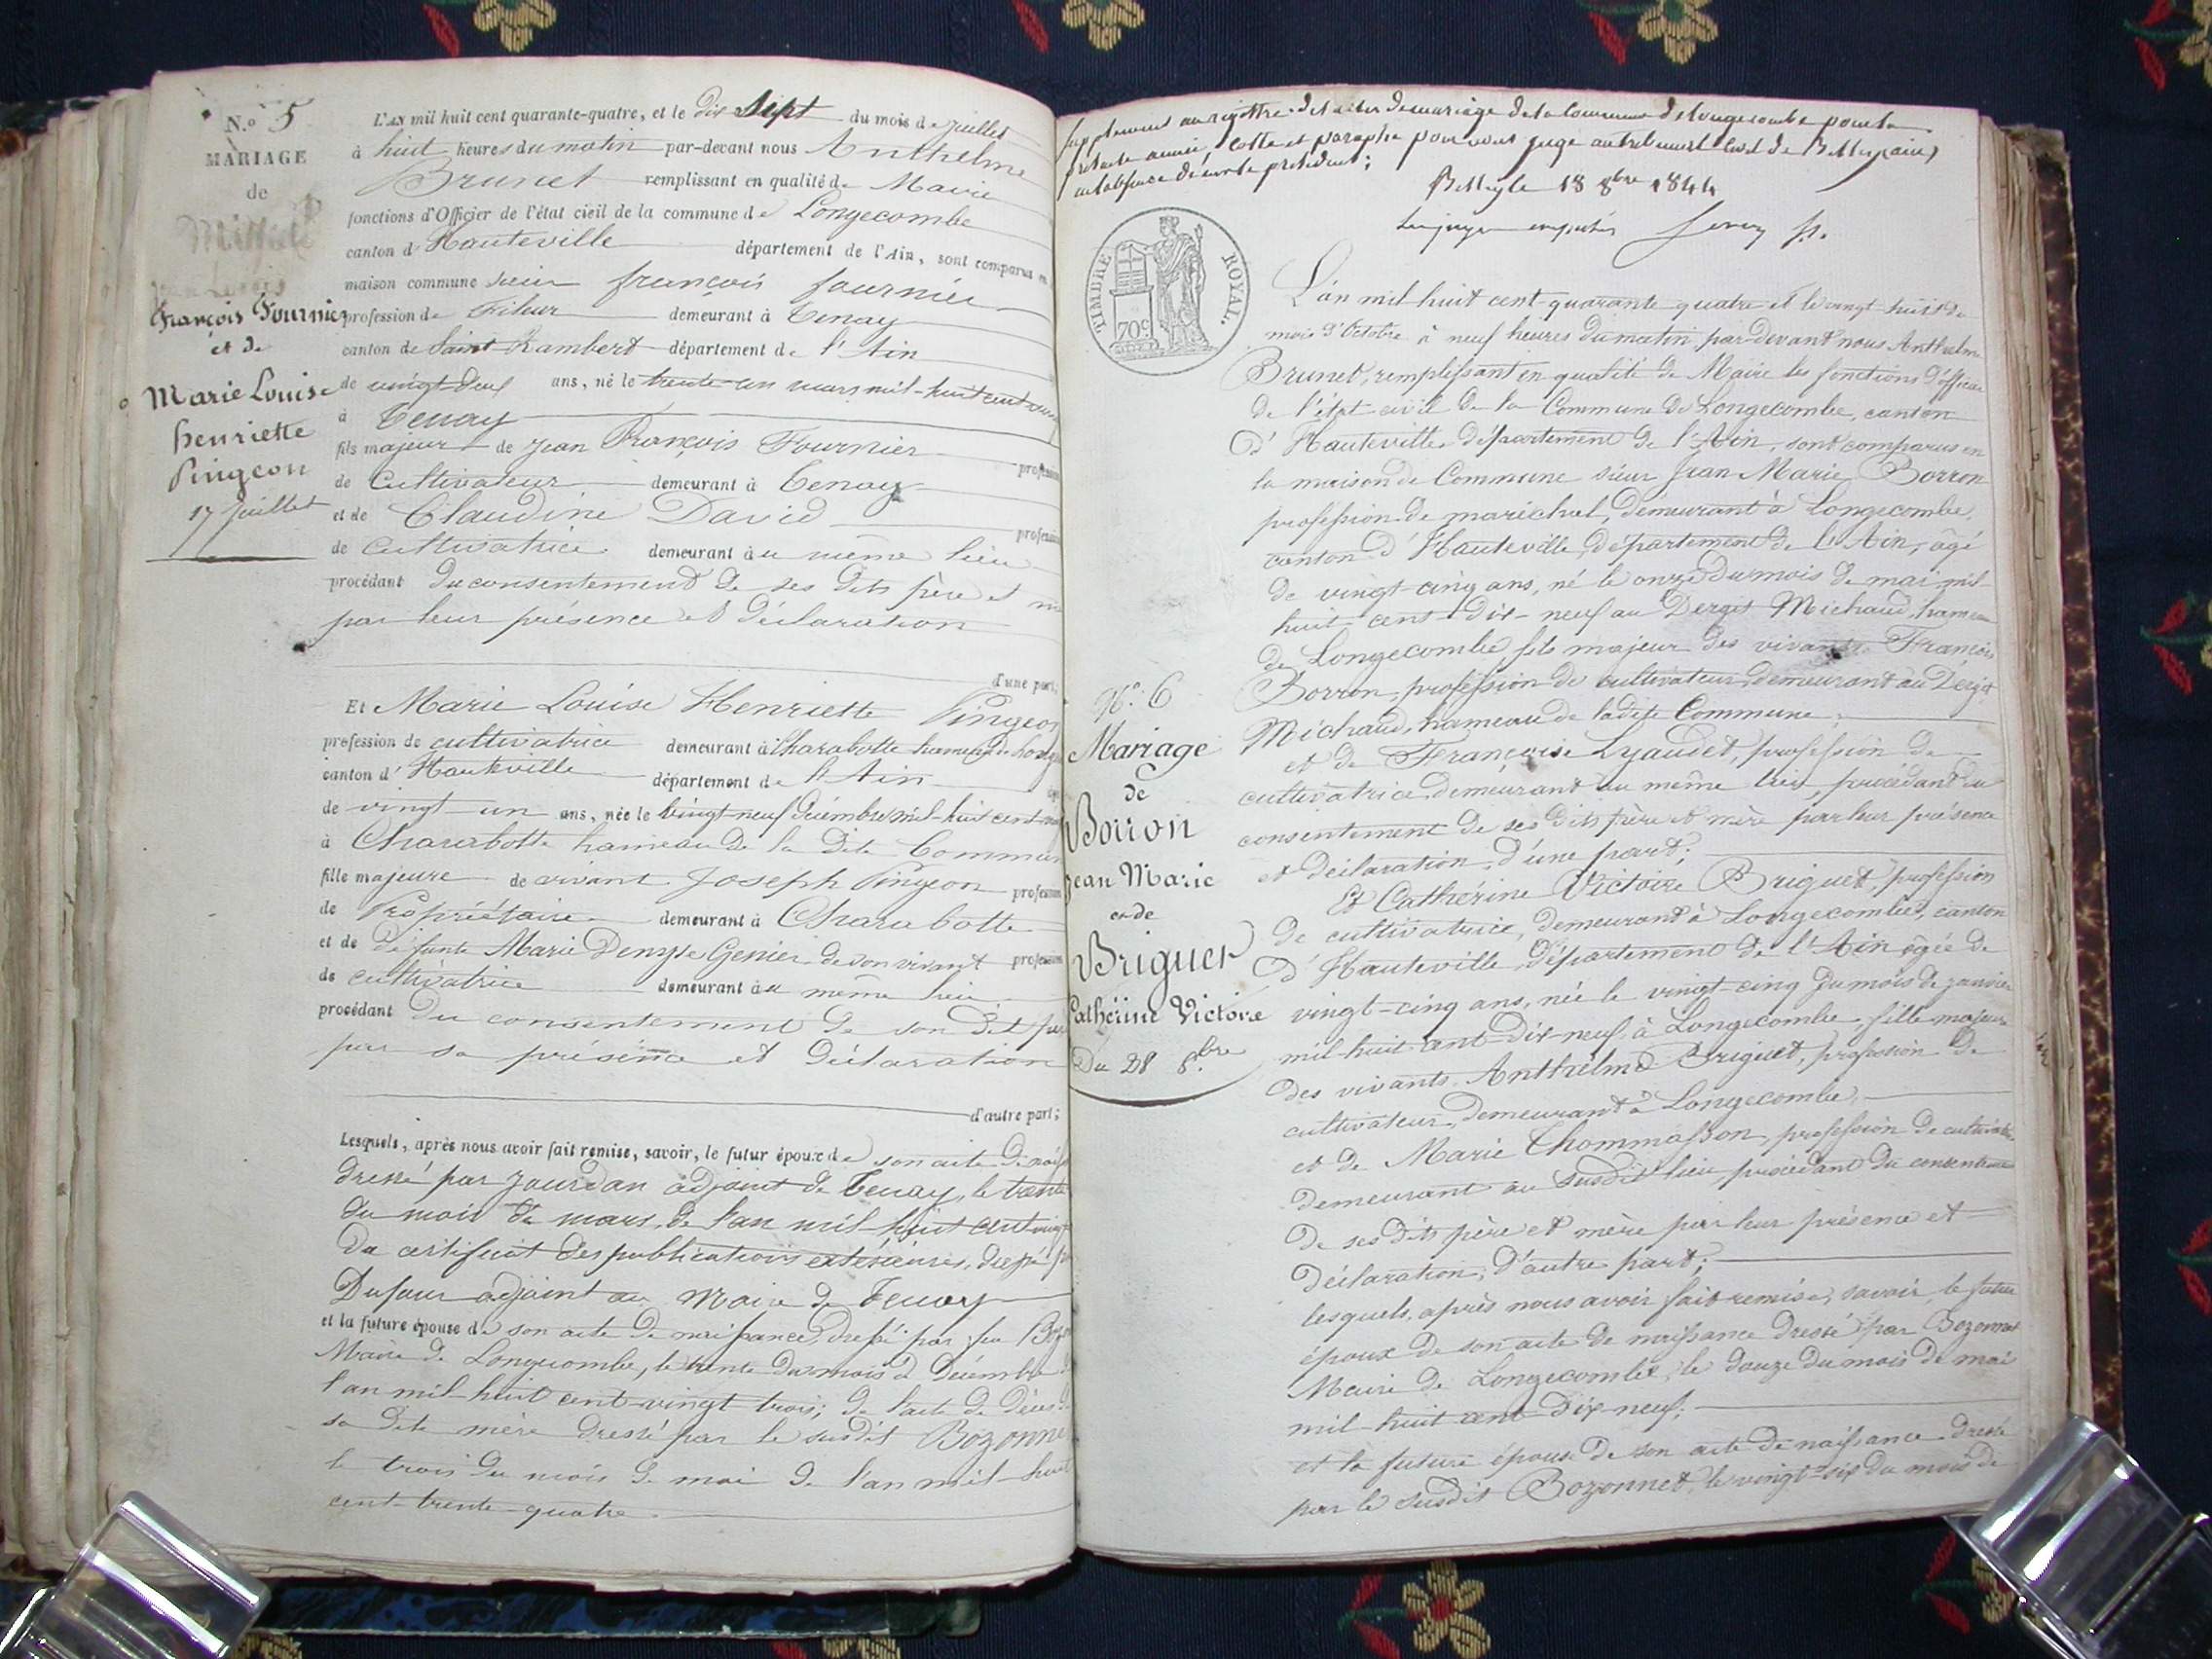 N.o 5
MARIAGE
de
François Fournier
et de
Marie Louise
henriette
Pingeon
17 Juillet
L'AN mil huit cent quarante-quatre, et le dix Sept du mois de juillet
à huit heures du matin par-devant nous Anthelme
Brunet remplissant en qualité de Maire
fonctions d'Officier de l'état civil de la commune de Longecombe
canton d'Hauteville département de l'Ain, sont comparus en
maison commune sieur françois fournier
profession de Fileur demeurant à Tenay
canton de Saint Rambert département de l'Ain
de vingt-deux ans, né le trente-un mars mil-huit cent
à Tenay
fils majeur de Jean François Fournier profession
de Cultivateur demeurant à Tenay
et de Claudine David profession
de Cultivatrice demeurant àu même lieu
procédant du consentement de ses dits père et
par leur présence et déclaration
d'une part;
Et Marie Louise Henriette Pingeon
profession de cultivatrice demeurant à Charabotte hameau de
canton d'Hauteville département de l'Ain
de vingt-un ans, née le vingt-neuf Décembre mil-huit cent
à Charabotte hameau de la dite Commune
fille majeure de vivant Joseph Pingeon profession
de Propriétaire demeurant à Charabotte
et de défunte Marie Denyse Genier de son vivant profession
de cultivatrice demeurant àu même lieu
procédant du consentement de son dit père
par sa présence et déclaration
d'autre part;
Lesquels, après nous avoir fait remise, savoir, le futur époux de son acte de
dressé par Jourdan adjoint de Tenay, le trente
du mois de mars, de l'an mil-huit cent
Du certificat des publications extérieures, dressé
Dufour adjoint au Maire de Tenay
et la future épouse de son acte de naissance dressé par feu
Maire de Longecombe, le trente du mois de Décembre
l'an mil-huit cent-vingt trois; de l'acte de décès de
sa dite mère dressé par le susdit Bozonnet
le trois du mois de mai de l'an mil-huit
cent-trente-quatre.
Supplément au registre des actes de mariage de la commune de Longecombe pour la
présente année, cotté et paraphé par nous juge au tribunal civil de Belley,
en l'absence de président;
Belley le 18 8bre 1844
TIMBRE ROYAL.
709
N.o 6
Mariage
de
Borron
Jean Marie
et de
Briguet
Cathérine Victoire
Du 28 8.bre
L'an mil huit cent quarante quatre et le vingt-huit du
mois d'Octobre à neuf heures du matin, par-devant nous Anthelme
Brunet, remplissant en qualité de Maire les fonctions d'officier
de l'état civil de la Commune de Longecombe, canton
d'Hauteville, département de l'Ain, sont comparus en
la maison de Commune sieur Jean Marie Borron
profession de maréchal, demeurant à Longecombe,
canton d'Hauteville, département de l'Ain, âgé
de vingt-cinq ans, né le onze du mois de mai mil-
huit cent dix-neuf au Dergis Michaud, hameau
de Longecombe, fils majeur des vivants François
Borron, profession de cultivateur, demeurant au Dergis
Michaud, hameau de ladite Commune;
et de Françoise Lyaudet, profession de
cultivatrice demeurant au même lieu, procédant du
consentement de ses dits père et mère par leur présence
et déclaration, d'une part;
Et Cathérine Victoire Briguet, profession
de cultivatrice, demeurant à Longecombe, canton
d'Hauteville, département de l'Ain âgée de
vingt-cinq ans, née le vingt-cinq du mois de janvier
mil-huit cent-dix-neuf, à Longecombe, fille majeure
des vivants Anthelme Briguet, profession de
cultivateur, demeurant à Longecombe,
et de Marie Thommasson, profession de cultivatrice
demeurant au susdit lieu, procédant du consentement
de ses dits père et mère par leur présence et
déclaration; d'autre part;
lesquels, après nous avoir fait remise, savoir, le futur
époux de son acte de naissance dressé par Bozonnet
Maire de Longecombe, le douze du mois de mai
mil-huit cent dix neuf;
et la future épouse de son acte de naissance dressé
par le susdit Bozonnet, le vingt-six du mois de